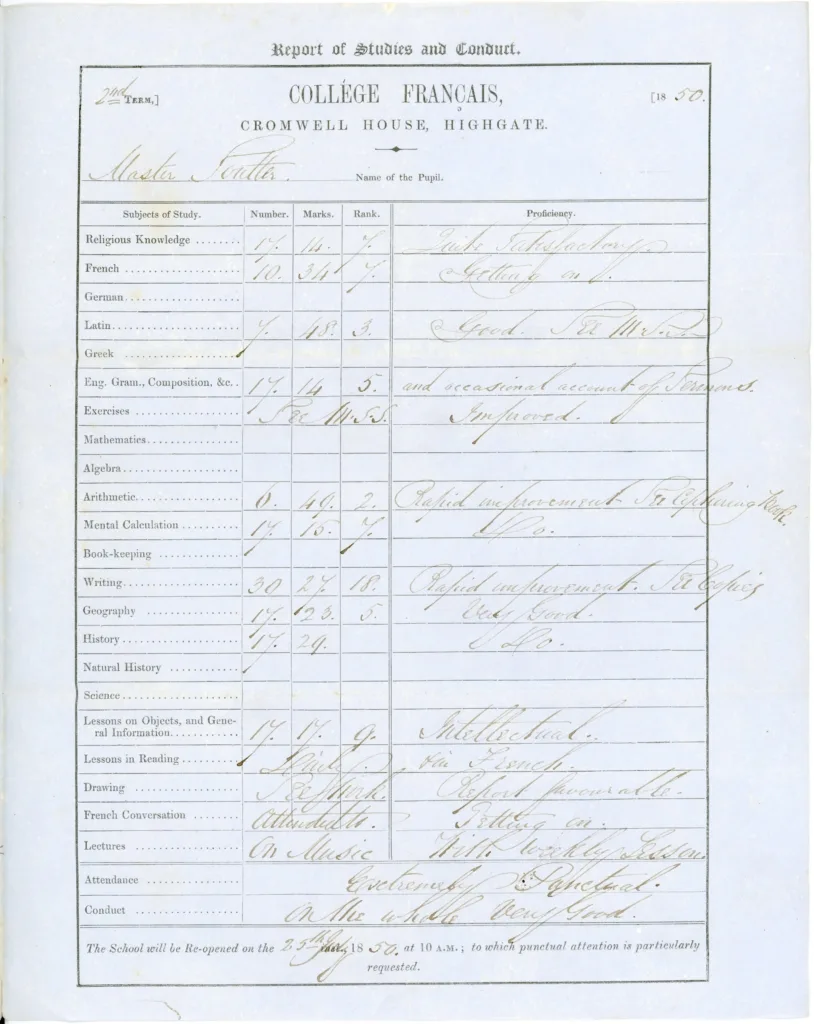 Report of Studies and Conduct.
2nd TERM,] COLLÉGE FRANÇAIS, [18 50.
CROMWELL HOUSE, HIGHGATE.
Master Name of the Pupil.
Subjects of Study. Number. Marks. Rank. Proficiency.
Religious Knowledge ........ 17. 14. 7. Quite Satisfactory.
French .................... 10. 34 7. Getting on.
German....................
Latin...................... 7. 48. 3. Good. See M.S.S.
Greek ....................
Eng. Gram., Composition, &c. . 17. 14 5. and occasional account of Sermons.
Exercises .................. See M.S.S. Improved.
Mathematics................
Algebra....................
Arithmetic.................. 6. 49. 2. Rapid improvement See Cyphering Book.
Mental Calculation .......... 17. 15. 7. Do.
Book-keeping ..............
Writing.................... 30 27. 18. Rapid improvement. See Copies
Geography ................ 17. 23. 5. Very Good.
History.................... 17. 29. Do.
Natural History ............
Science....................
Lessons on Objects, and Gene-
ral Information............ 17. 17. 9. Intellectual.
Lessons in Reading .......... Daily. in French.
Drawing .................. See Work. Report favourable.
French Conversation ........ Attends to. Getting on.
Lectures .................. On Music With weekly Lesson.
Attendance ................ Extremely Punctual.
Conduct .................. On the whole Very Good.
The School will be Re-opened on the 25th July 18 50. at 10 A.M.; to which punctual attention is particularly
requested.